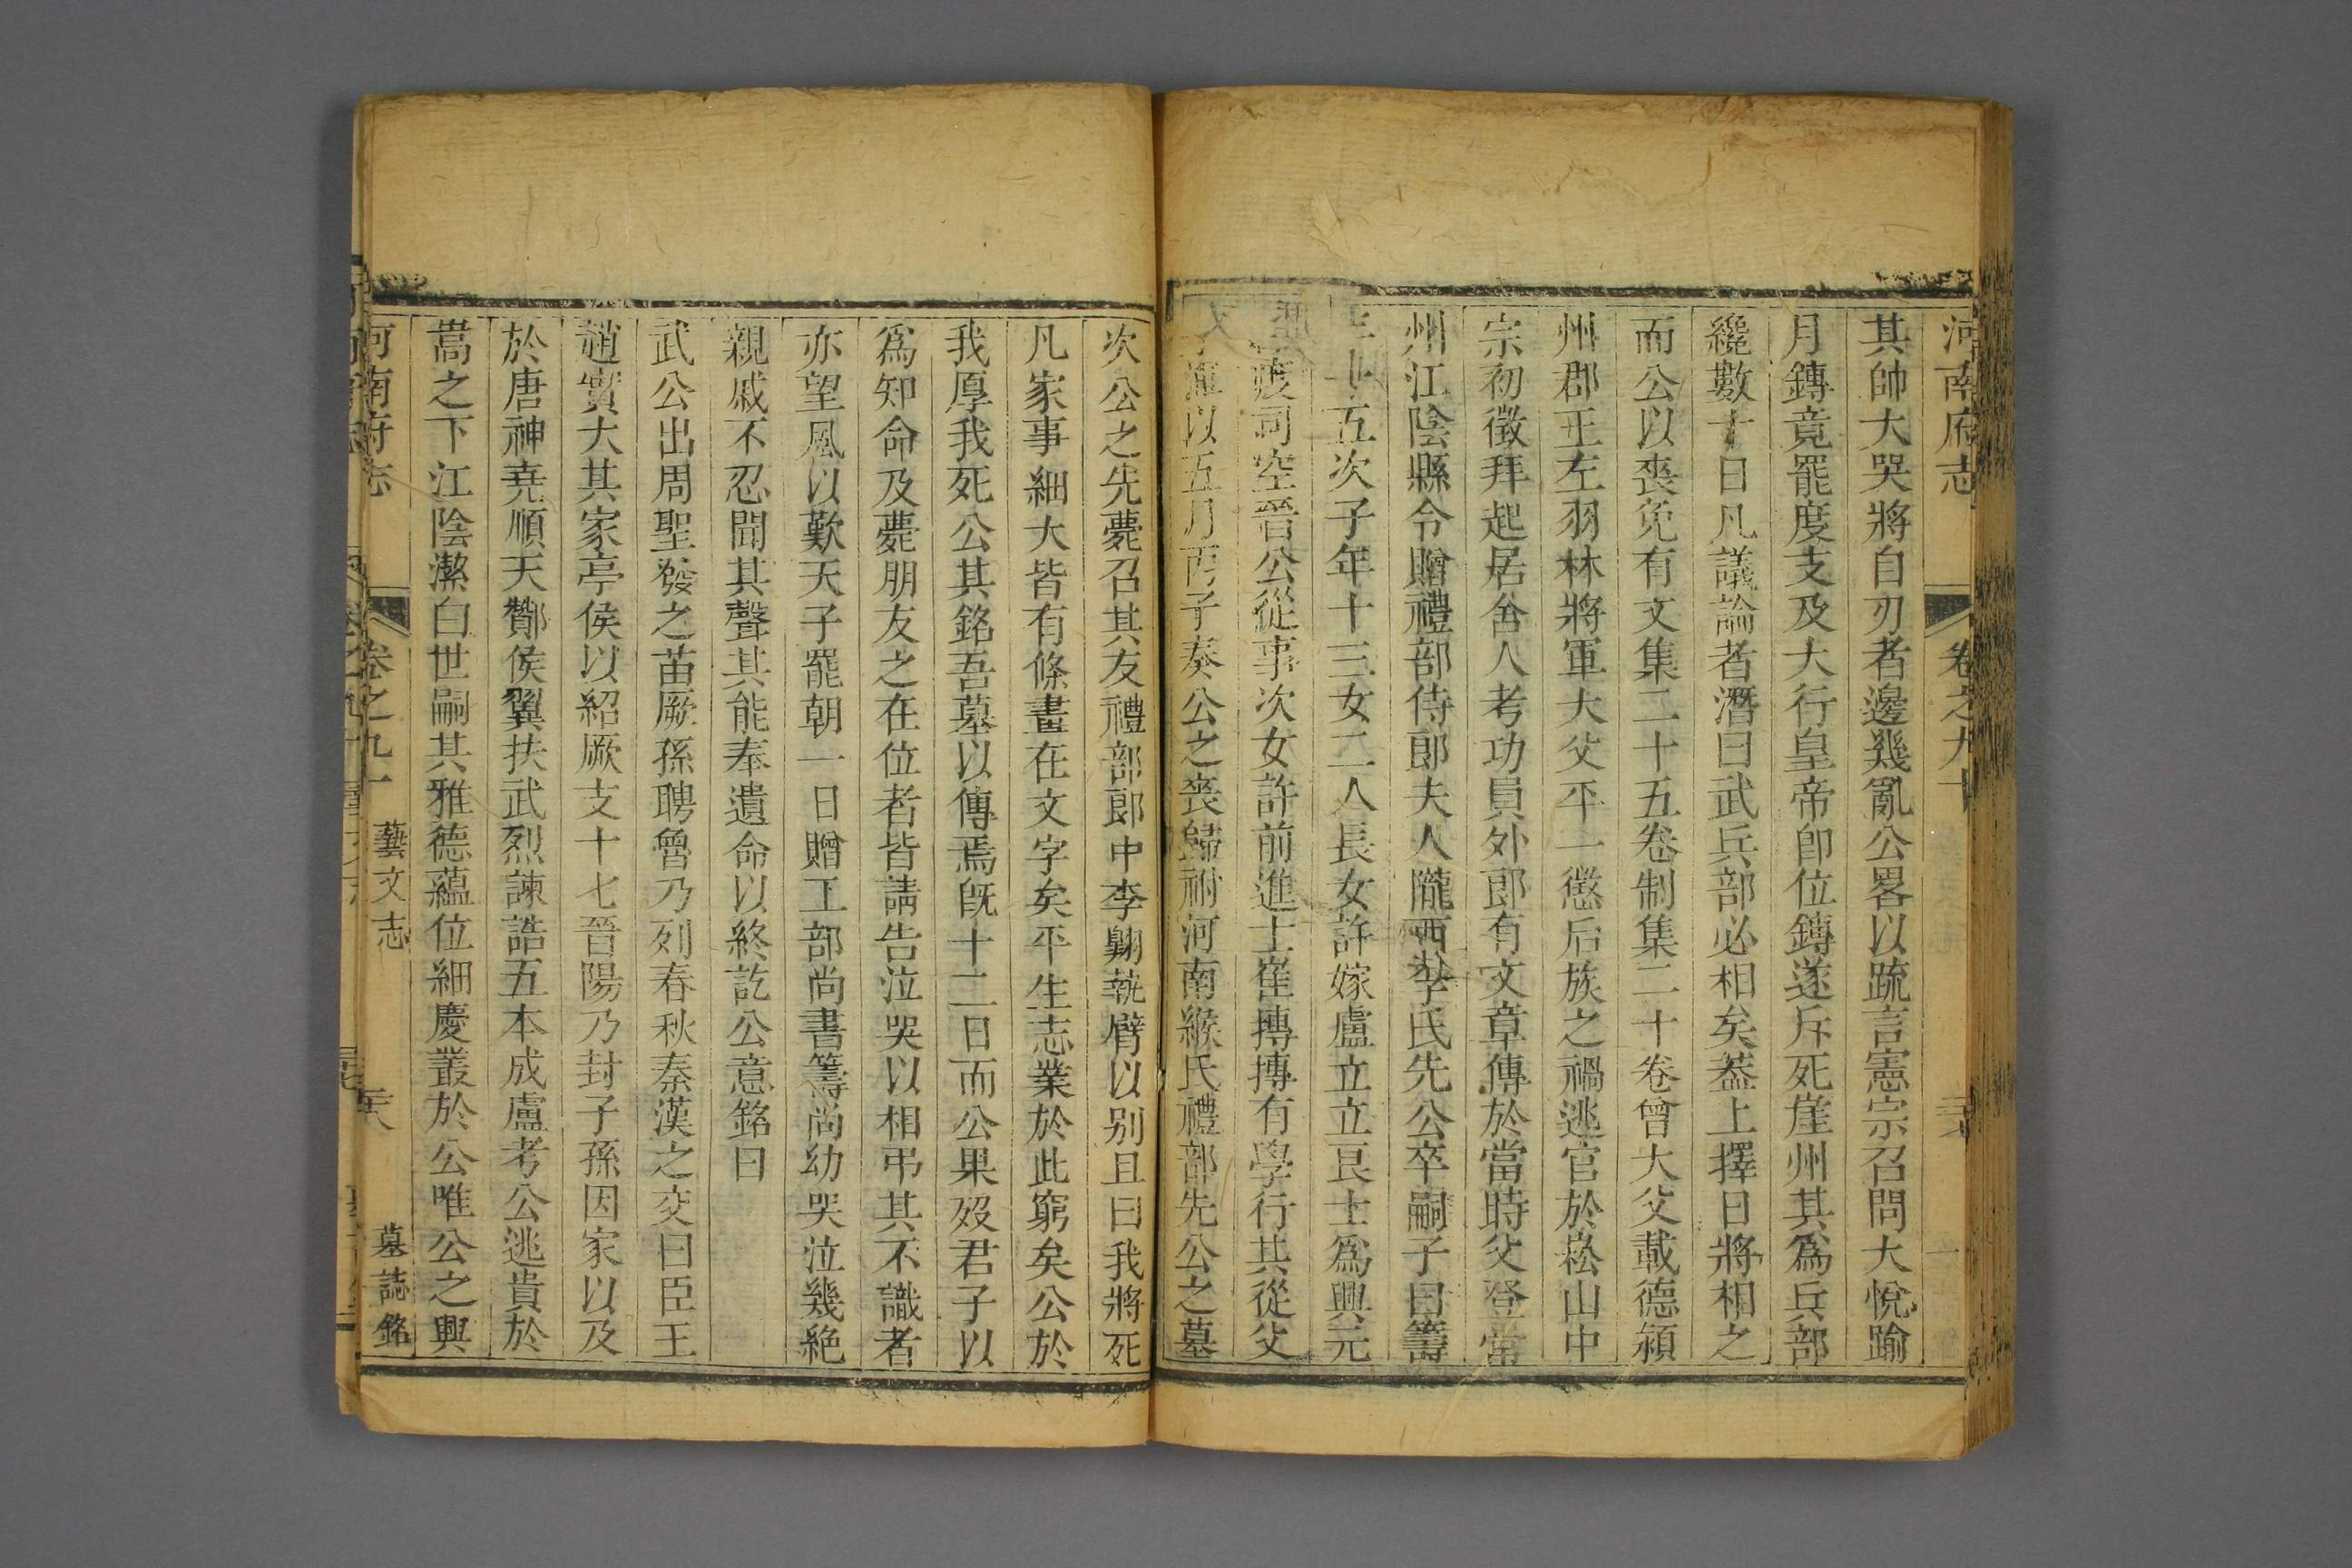 河南府志 卷之九十
其帥大哭將自刃者邊幾亂公畧以疏言憲宗召問大悅踰
月鏄竟罷度支及大行皇帝卽位鏄遂斥死崖州其爲兵部
纔數十日凡議論者潛曰武兵部必相矣葢上擇日將相之
而公以喪免有文集二十五卷制集二十卷曾大父載德潁
州郡王左羽林將軍大父平一懲后族之禍逃官於嵩山中
宗初徵拜起居舍人考功員外郎有文章傳於當時父登常
州江陰縣令贈禮部侍郎夫人隴西李氏先公卒嗣子曰籌
年十五次子年十三女二人長女許嫁盧立立良士爲興元
從事司空晉公從事次女許前進士崔摶摶有學行其從父
以五月丙子奏公之喪歸祔河南緱氏禮部先公之墓
次公之先薨召其友禮部郎中李翺執臂以別且曰我將死
凡家事細大皆有條畫在文字矣平生志業於此窮矣公於
我厚我死公其銘吾墓以傳焉旣十二日而公果歿君子以
爲知命及薨朋友之在位者皆請告泣哭以相弔其不識者
亦望風以歎天子罷朝一日贈工部尚書籌尚幼哭泣幾絶
親戚不忍聞其聲其能奉遺命以終訖公意銘曰
武公出周聖發之苗厥孫聘魯乃列春秋秦漢之交曰臣王
趙實大其家亭侯以紹厥支十七晉陽乃封子孫因家以及
於唐神堯順天酇侯翼扶武烈諫誥五本成盧考公逃貴於
嵩之下江陰潔白世嗣其雅德蘊位細慶叢於公唯公之興
河南府志 卷之九十 藝文志 墓誌銘